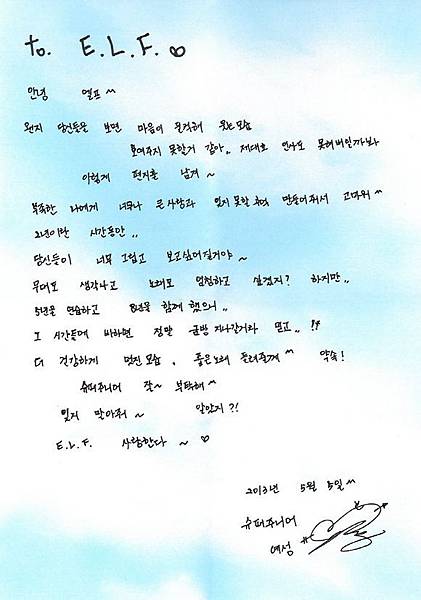 to. E.L.F. ♡
안녕 엘프^^
왠지 당신들을 보면 마음이 뭉클해 웃는모습
보여주지 못할거 같아.. 제대로 인사도 못해버릴까봐
이렇게 편지를 남겨~
부족한 나에게 너무나 큰사랑과 잊지 못할 추억 만들어줘서 고마워^^
2년이란 시간동안..
당신들이 너무 그립고 보고싶어질거야~
무대도 생각나고 노래도 엄청하고 싶겠지? 하지만..
5년을 연습하고 8년을 함께 했으니..
그 시간들에 비하면 정말 금방 지나갈거라 믿고..!!
더 건강하게 멋진모습, 좋은노래 들려줄게^^ 약속!
슈퍼주니어 잘~ 부탁해^^
잊지 말아줘~ 알았지?!
E.L.F. 사랑한다~♡
2013년 5월 5일^^
슈퍼주니어
예성